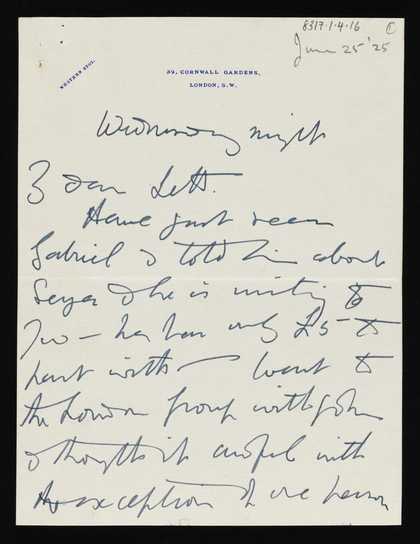 8317.1.4.16 1
June 25 '25
WESTERN 8701.
39, CORNWALL GARDENS,
LONDON, S.W.
Wednesday night
dear Lett.
Have just seen
Gabriel & told him about
& he is writing to
– has only £5 to
part with – Went to
the London Group with John
& thought it awful with
the exception of one